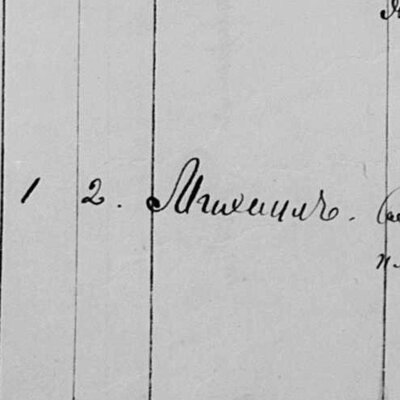 1 2. Михаилъ.